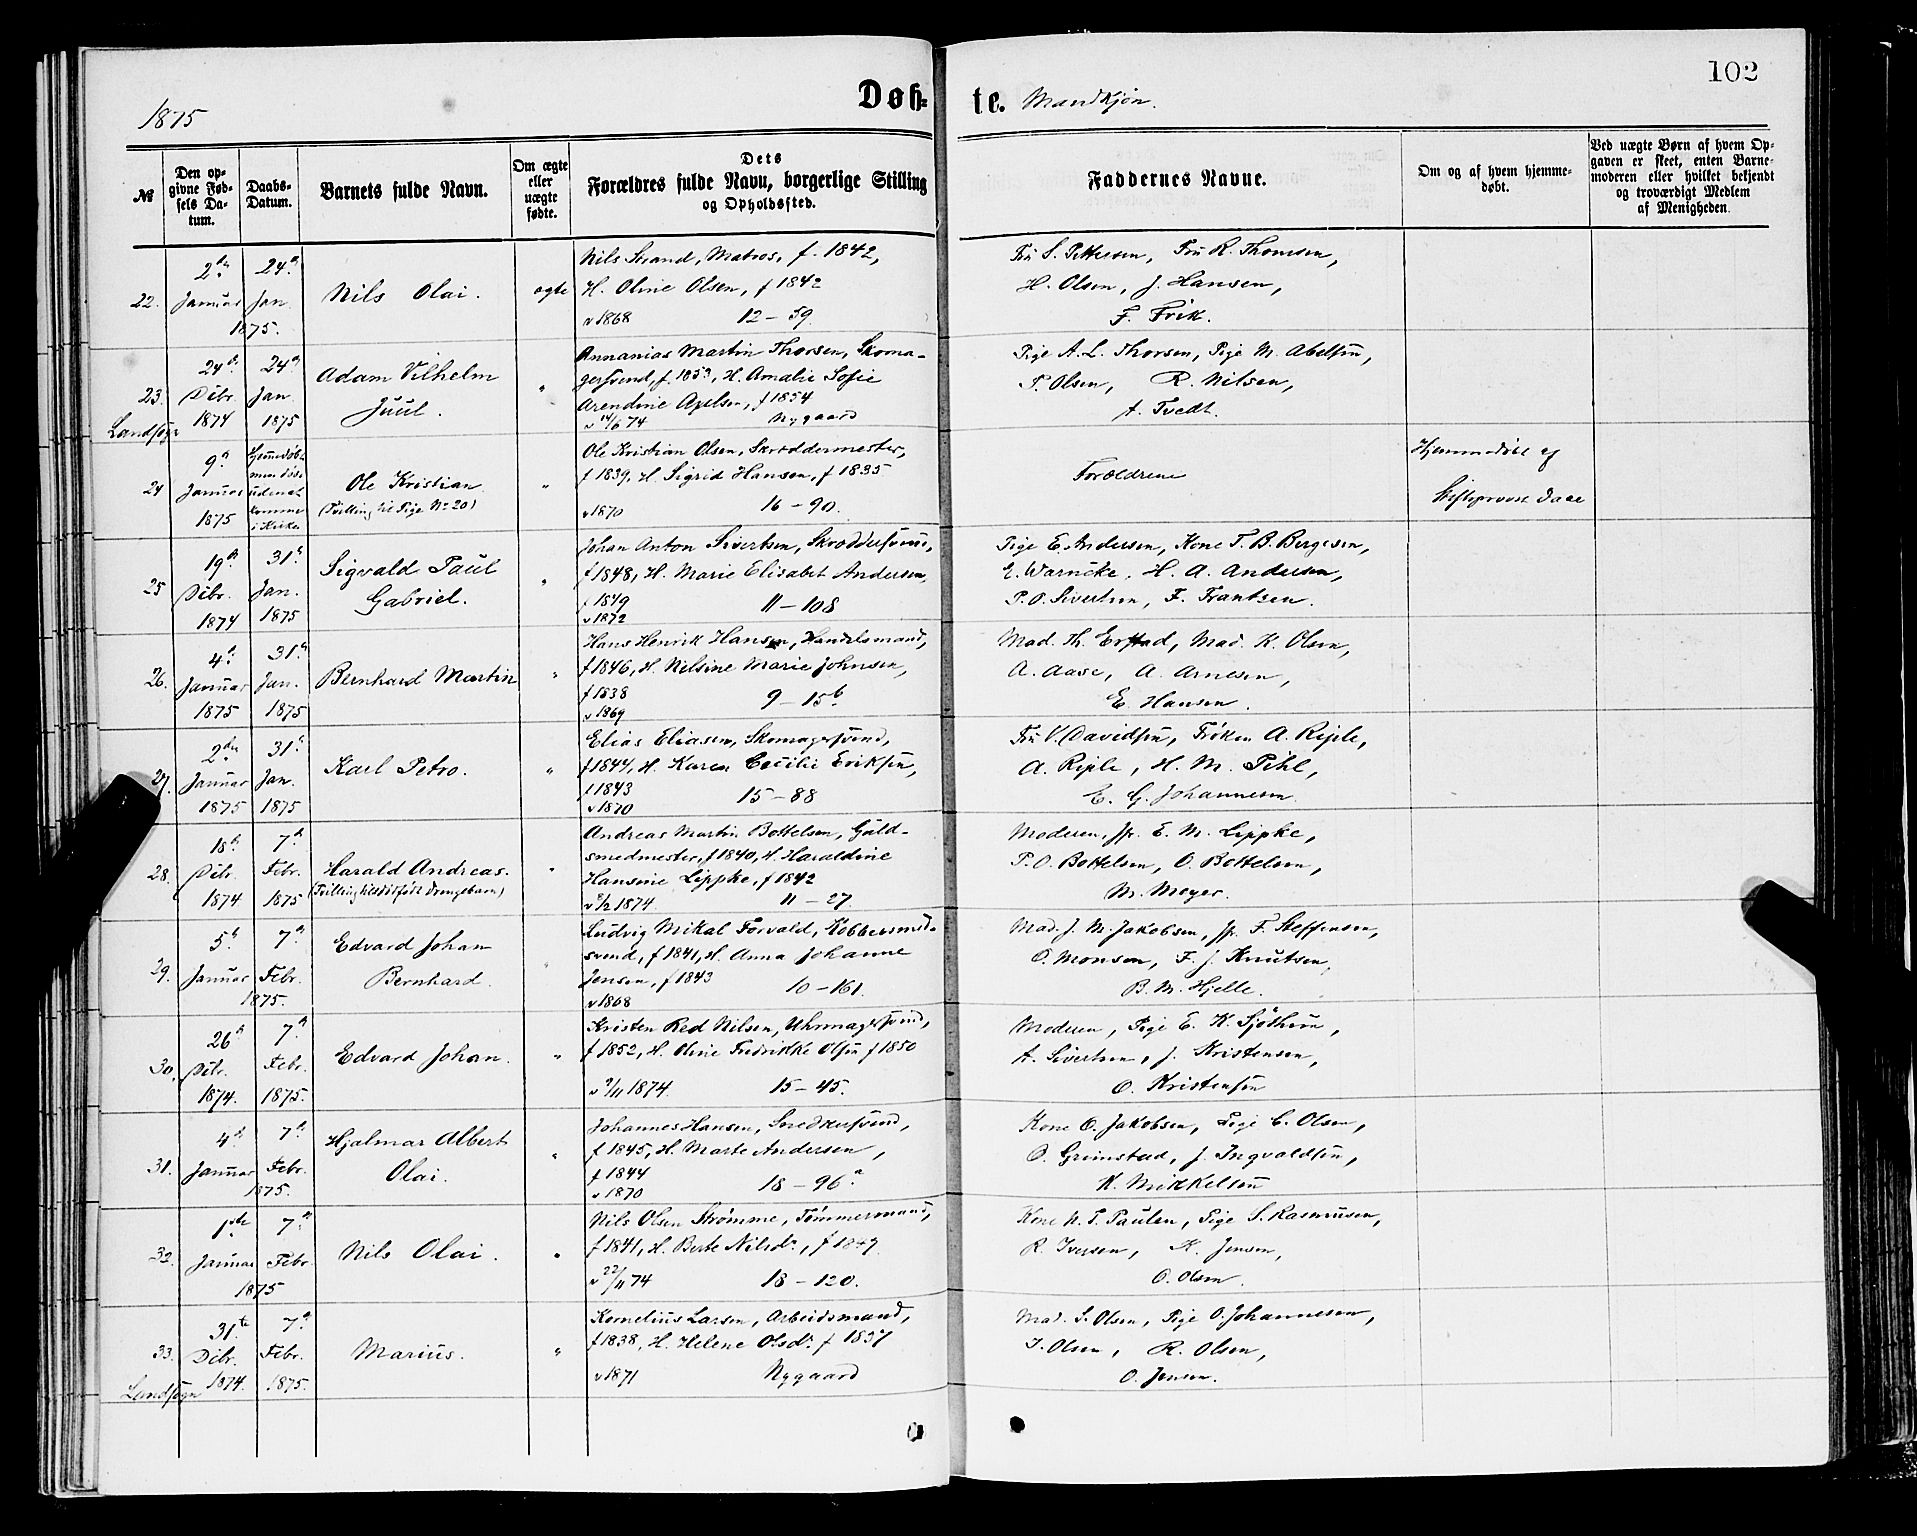 102
1875
Døb-
te. Mandkjøn.
№
Den op-
givne Fød-
sels Da-
tum.
Daabs-
Datum.
Barnets fulde Navn.
Om ægte
eller
uægte
fødte.
Dets
Forældres fulde Navn, borgerlige Stilling
og Opholdssted.
Faddernes Navne.
Om og af hvem hjemme-
døbt.
Ved uægte Børn af hvem Op-
gaven er skeet, enten Barne-
moderen eller hvilket bekjendt
og troværdigt Medlem
af Menigheden.
22.
2den
Januar
24de
Jan.
1875.
Nils Olai.
ægte
Nils Strand, Matros, f. 1842,
H. Oline Olsen, f 1842
v 1868 12 - 59
Fru S. Pettersen, Fru R. Thomsen,
H. Olsen, J. Hansen,
F. Frik.
23.
Landsogn
24de
Dibr.
1874
24de
Jan.
1875
Adam Vilhelm
Juul.
"
Annanias Martin Thorsen, Skoma-
gersvend, f. 1853, H. Amalie Sofie
Arendine Axelsen, f 1854
v 14/6 74 Nygaard
Pige A. L. Thorsen, Pige M. Abelsen,
P. Olsen, R. Nilsen,
A. Tvedt.
24
9de
Januar
1875
Hjemmedøbt
men døde
uden at
komme
i Kirke
Ole Kristian
(Tvilling til Pige No 20)
"
Ole Kristian Olsen, Skræddermester,
f 1839, H. Sigrid Hansen, f 1835
v 1870 16 - 90.
Forældrene
Hjemmedøbt af
Stiftsprovst Daae
25
19de
Dibr.
1874
31te
Jan.
1875
Sigvald Paul
Gabriel.
"
Johan Anton Sivertsen, Skræddersvend,
f 1848, H. Marie Elisabet Andersen
f 1849 11 - 108
v 1872
Pige E. Andersen, Kone T. B. Bergesen,
E. Warncke, H. A. Andersen,
P. O. Sivertsen, F. Frantsen.
26.
4de
Januar
1875
31te
Jan.
1875
Bernhard Martin
"
Hans Henrik Hansen, Handelsmand,
f 1846, H. Nilsine Marie Johnsen,
f 1838 9 - 15b
v 1869
Mad. Th. Erstad, Mad. K. Olsen,
A. Aase, A. Arnesen,
E. Hansen.
27.
2den
Januar
1875
31te
Jan.
1875
Karl Petro.
"
Elias Eliasen, Skomagersvend,
f 1844, H. Karen Cecilie Eriksen,
f 1843 15 - 88
v 1870
Fru V. Davidsen, Frøken A. Riple,
A. Riple, H. M. Pihl,
E. G. Johannesen
28.
18de
Dibr.
1874
7de
Febr.
1875
Harald Andreas.
(Tvilling til dødfødt Drengebarn)
"
Andreas Martin Bottelsen, Guld-
smedmester, f 1840, H. Haraldine
Hansine Lippke, f 1842
v 5/2 1874 11 - 27.
Moderen, Jfr. E. M. Lippke,
P. O. Bottelsen, O. Bottelsen,
M. Meyer.
29.
5te
Januar
7de
Febr.
1875.
Edvard Johan
Bernhard.
"
Ludvig Mikal Forvald, Kobbersmed-
svend, f 1841, H. Anna Johanne
Jensen, f 1843 10 - 161.
v 1868
Mad. J. M. Jakobsen, Jfr. F. Steffensen,
O. Monsen, F. J. Knutsen,
B. M. Hjelle.
30.
26de
Dibr.
1874.
7de
Febr.
1875.
Edvard Johan.
"
Kristen Red Nilsen, Uhrmagersvend,
f 1852, H. Oline Fredrikke Olsen f 1850
v 9/11 1874 15 - 45.
Moderen, Pige E. K. Sjøthun,
A. Sivertsen, J. Kristensen,
O. Kristensen
31.
4de
Januar
7de
Febr.
1875.
Hjalmar Albert
Olai.
"
Johannes Hansen, Snedkersvend,
f 1845, H. Marte Andersen,
f 1844 18 - 96a
v 1870
Kone O. Jakobsen, Pige C. Olsen,
O. Grimstad, J. Ingvaldsen,
K. Mikkelsen
32.
1ste
Januar
7de
Febr.
1875
Nils Olai.
"
Nils Olsen Strømme, Tømmermand,
f 1841, H. Berte Nilsdr., f 1849
v 22/11 74 18 - 120.
Kone N. T. Paulsen, Pige S. Rasmusen,
R. Iversen, K. Jensen,
O. Olsen.
33.
Landsogn
31te
Dibr.
1874.
7de
Febr.
1875.
Marius.
"
Kornelius Larsen, Arbeidsmand,
f 1838, H. Helene Olsdr. f 1837
v 1871 Nygaard
Mad. S. Olsen, Pige O. Johannesen,
I. Olsen, R. Olsen,
O. Jensen.